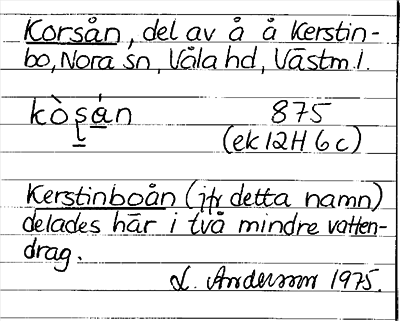 Korsån, del av å å Kerstin-
bo, Nora sn, Våla hd, Västm l.
kò̀ṣán 875
(ek 12H 6c)
Kerstinboån (jfr detta namn)
delades här i två mindre vatten-
drag.
L. Andersson 1975.